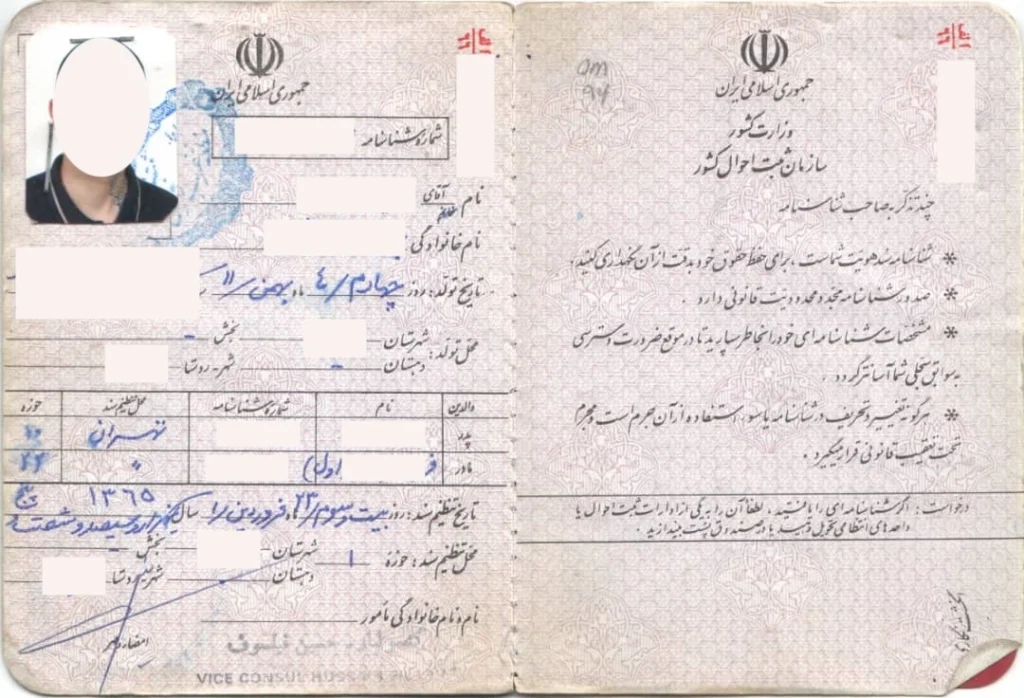 جمهوری اسلامی ایران
شماره شناسنامه
نام آقای خانم
نام خانوادگی:
تاریخ تولد: روز چهارم / ٤ ماه بهمن / ١١
محل تولد: شهرستان بخش -
دهستان - شهر - روستا
والدین نام شماره شناسنامه محل تنظیم سند حوزه
پدر تهران
مادر ف اول) " ٢٢
تاریخ تنظیم سند: روز بیست و سوم / ٢٣ ماه فروردین / ١ سال ١٣٦٥ یکهزار و سیصد و شصت و پنج
محل تنظیم سند: حوزه ١ شهرستان بخش -
دهستان شهر روستا
نام و نام خانوادگی مأمور
امضاء و مهر
VICE CONSUL
الف
٢٦
جمهوری اسلامی ایران
وزارت کشور
سازمان ثبت احوال کشور
چند تذکر به صاحب شناسنامه
* شناسنامه سند هویت شماست ، برای حفظ حقوق خود بدقت از آن نگهداری کنید.
* صدور شناسنامه مجدد محدودیت قانونی دارد .
* مشخصات شناسنامه ای خود را بخاطر بسپارید تا در موقع ضرورت دسترسی
به سوابق سجلی شما آسانتر گردد .
* هرگونه تغییر و تحریف در شناسنامه یا سوء استفاده از آن جرم است و مجرم
تحت تعقیب قانونی قرار میگیرد .
درخواست : اگر شناسنامه ای را یافتید ، لطفاً آن را به یکی از ادارات ثبت احوال یا
واحدهای انتظامی تحویل دهید یا در صندوق پست بیندازید .